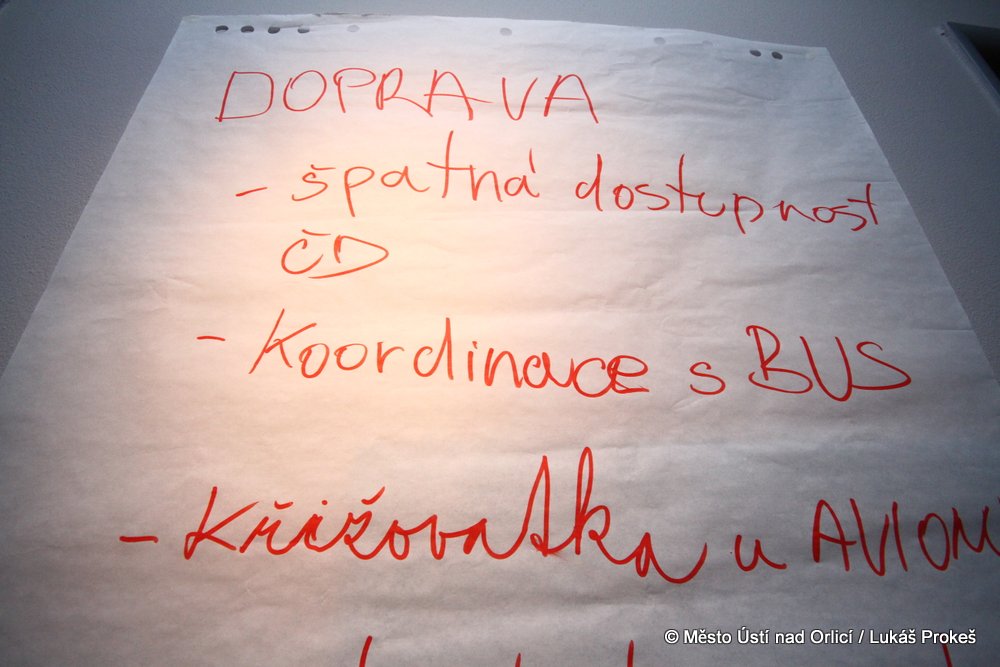 DOPRAVA
- špatná dostupnost
ČD
- Koordinace s BUS
- Křižovatka u AVION
© Město Ústí nad Orlicí / Lukáš Prokeš